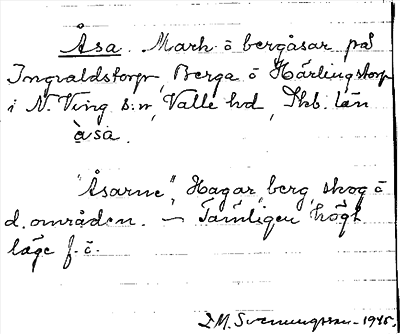 Åsa. Mark ö bergåsar på
Ingvaldstorp, Berga ö Härlingstorp
i N. Ving s:n, Valle hd, Skb. län
åsa.
"Åsarne", Hagar, berg, skog ö
d. områden. — Tämligen högt
läge f. ö.
I. M. Svenningsson - 1945.